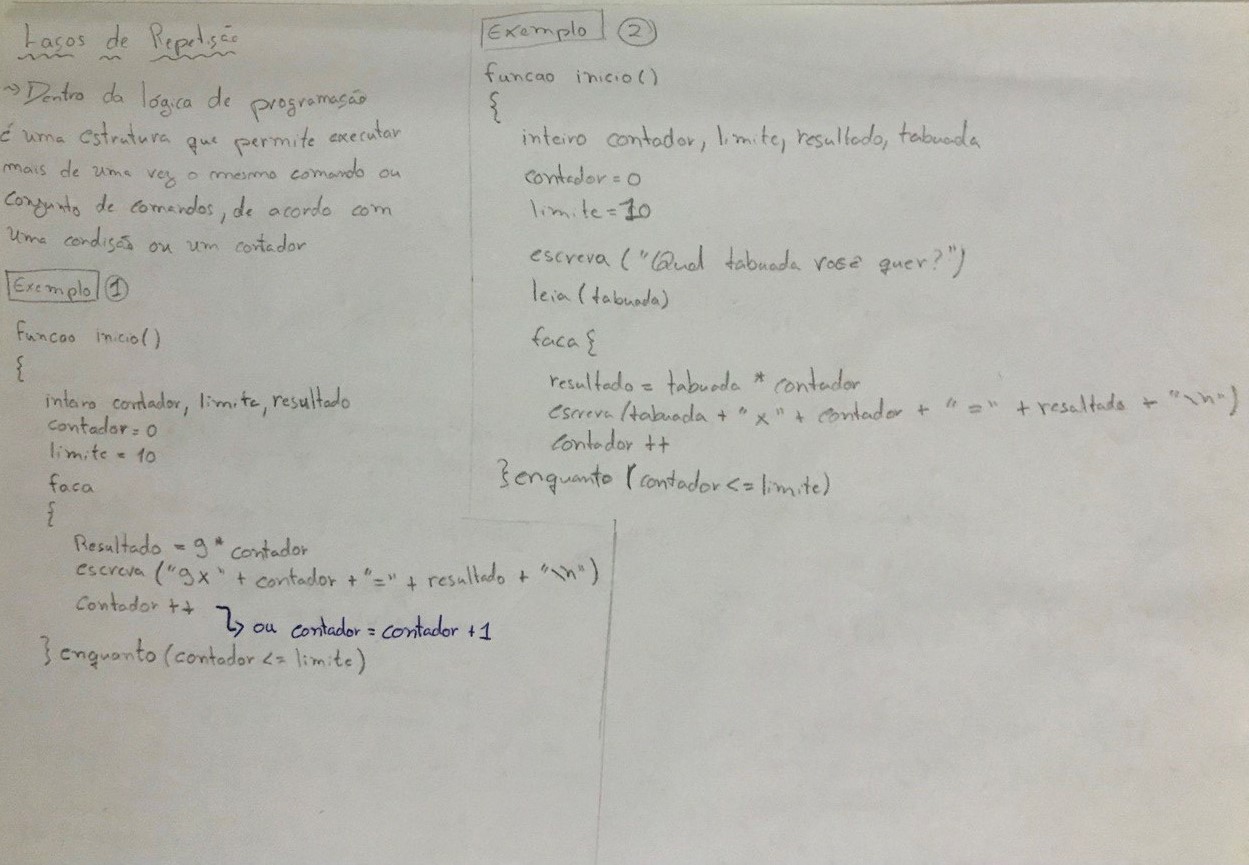 Laços de Repetição
~> Dentro da lógica de programação
é uma estrutura que permite executar
mais de uma vez o mesmo comando ou
conjunto de comandos, de acordo com
uma condição ou um contador
Exemplo 1
funcao inicio()
{
inteiro contador, limite, resultado
contador = 0
limite = 10
faca
{
Resultado = 9 * contador
escreva ("9x" + contador + "=" + resultado + "\n")
contador ++
ou contador = contador + 1
} enquanto (contador <= limite)
Exemplo 2
funcao inicio()
{
inteiro contador, limite, resultado, tabuada
contador = 0
limite = 10
escreva ("Qual tabuada você quer?")
leia (tabuada)
faca {
resultado = tabuada * contador
escreva (tabuada + "x" + contador + "=" + resultado + "\n")
contador ++
} enquanto (contador <= limite)